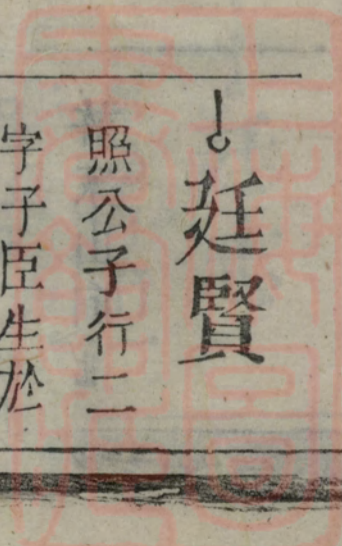 廷賢
照公子行二
字子臣生於